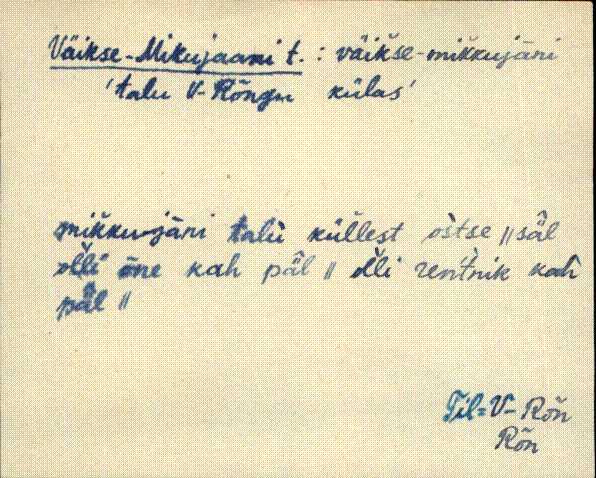 Väikse-Mikujaani t. : väikse-mikkujäni
'talu V-Rõngu külas'
mikku-jäni talù küllest òstse // säl
olli õne kah päl // olli reńtnik kah
päl //
Til = V- Rõn
Rõn